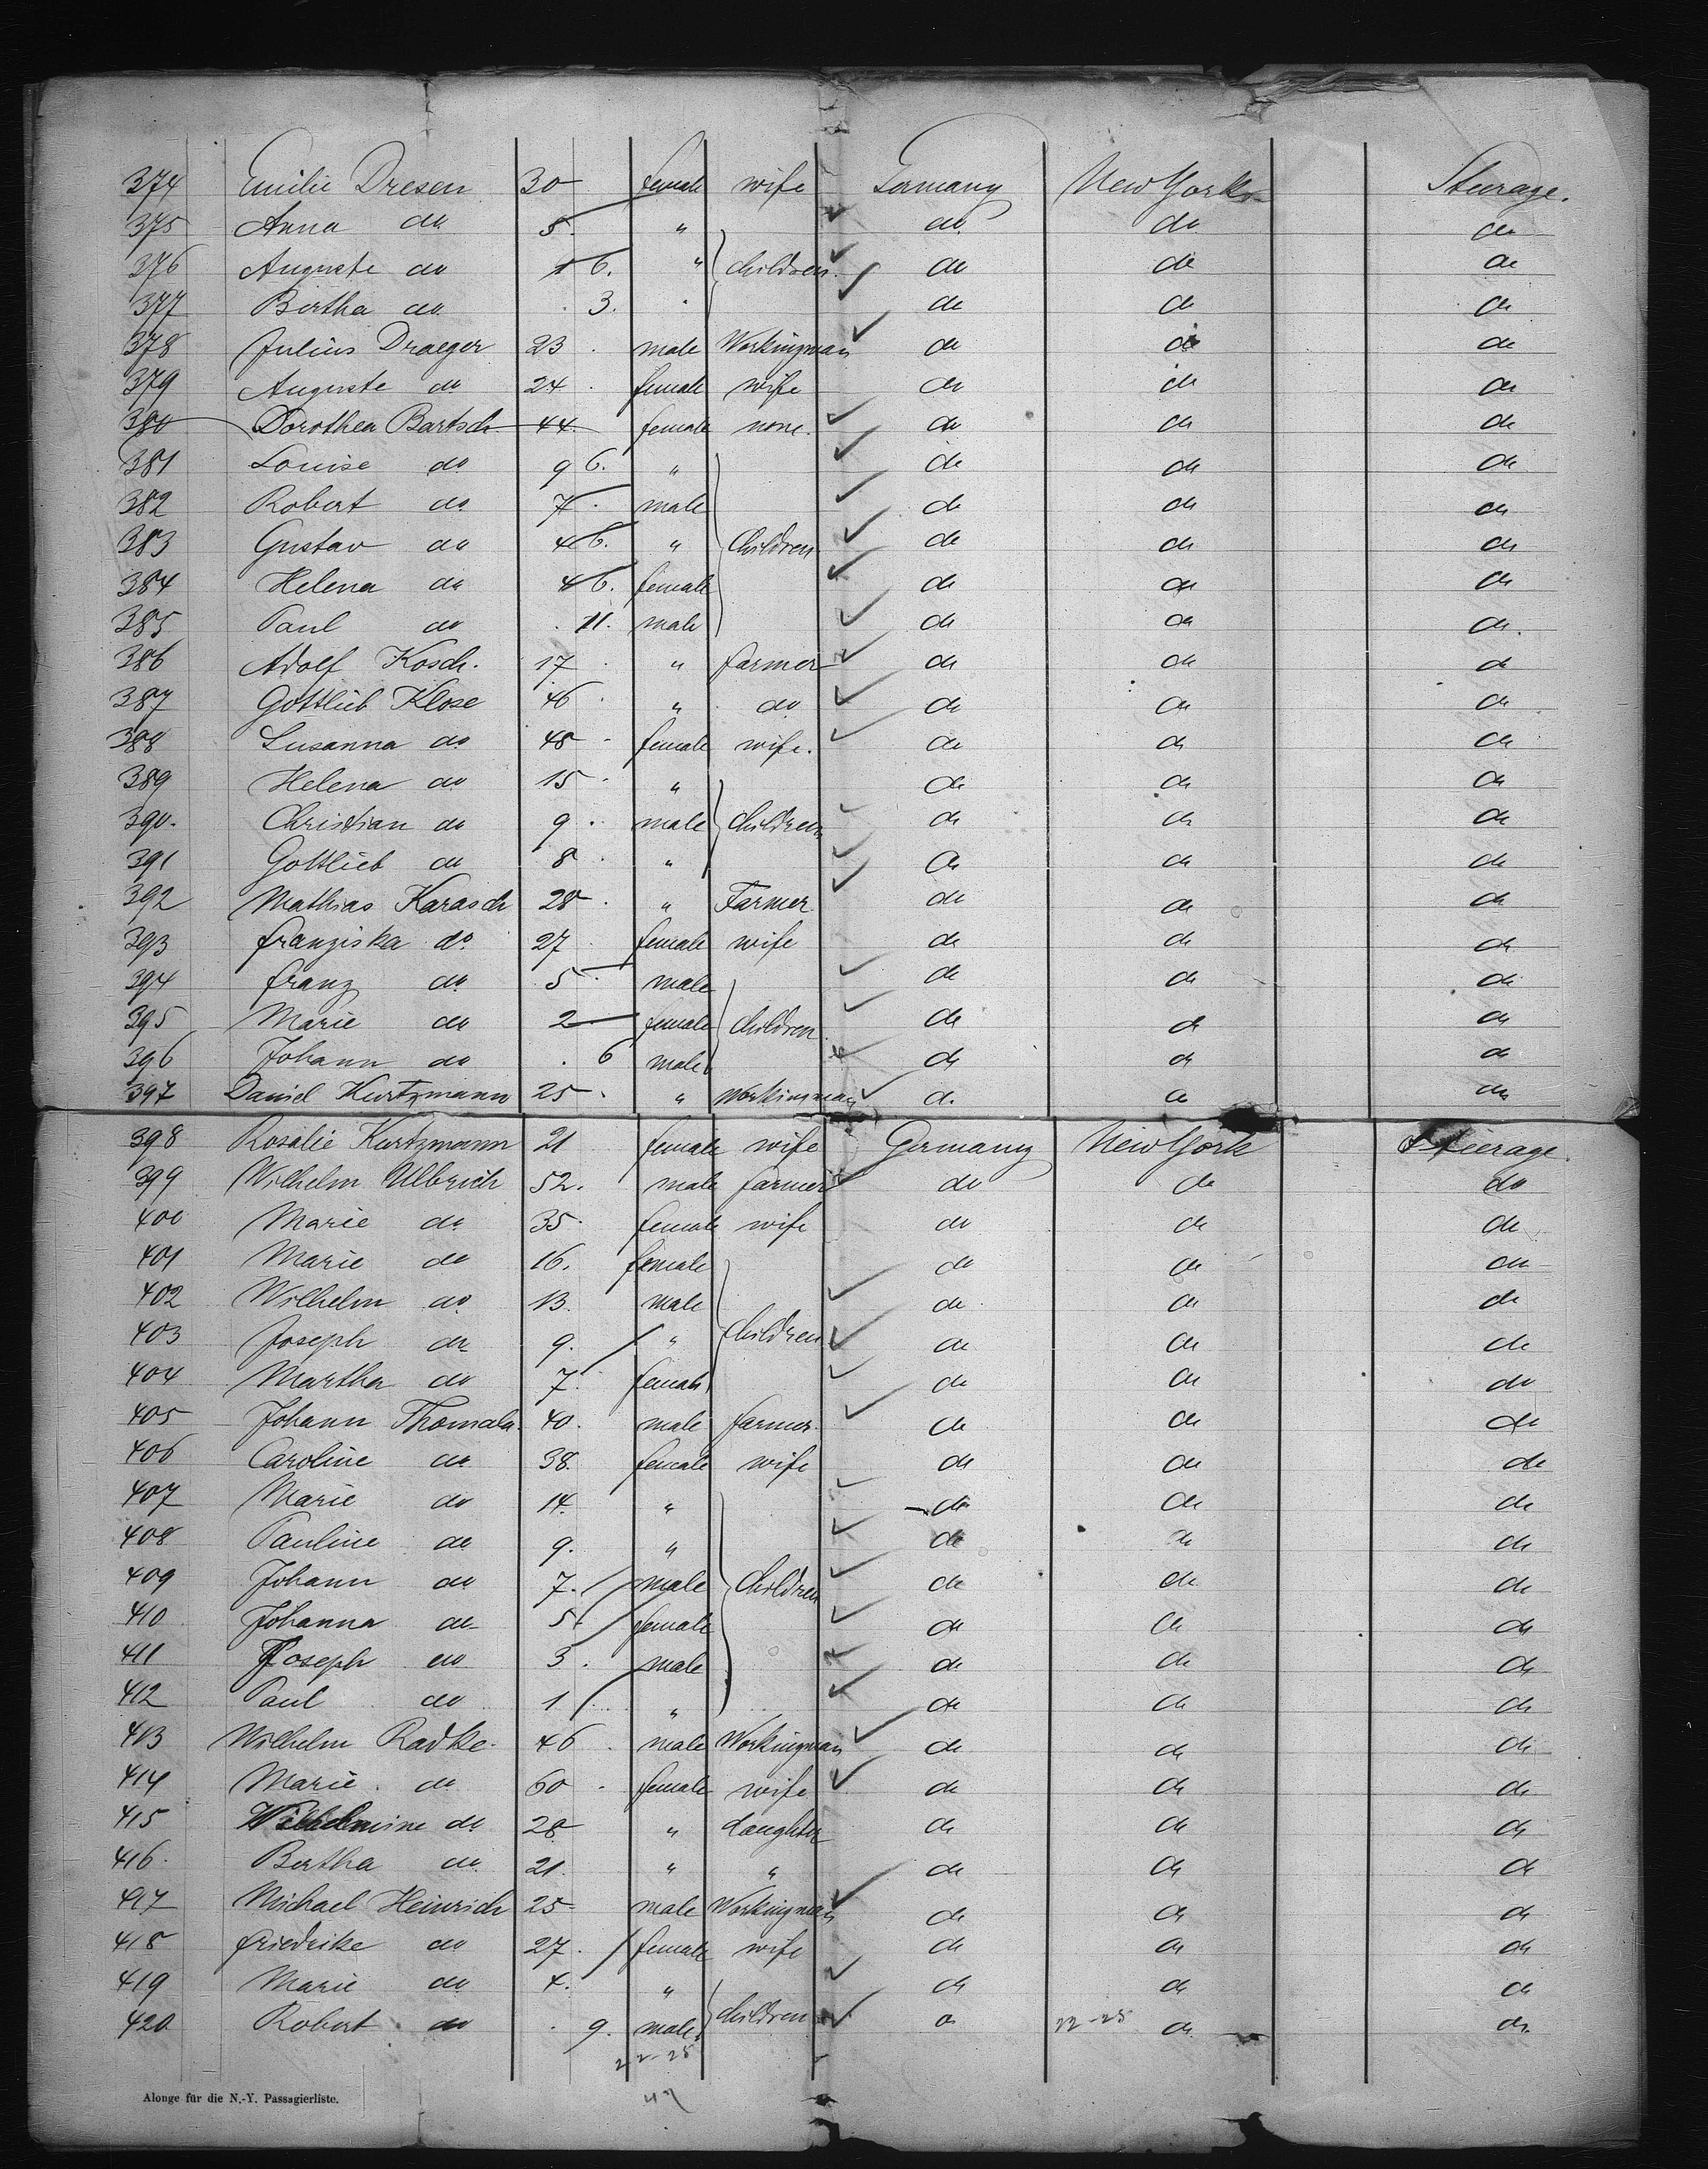 374 Emilie Dresen 30 female wife Germany New York Steerage.
375 Anna do 5. " do do do
376 Auguste do 1 6. " children. do do do
377 Bertha do . 3. " do do do
378 Julius Draeger 23 . male Workingman do do do
379 Auguste do 24 . female wife do do do
380 Dorothea Bartsch 44. female none. do do do
381 Louise do 9 6. " do do do
382 Robert do 7. male do do do
383 Gustav do 4 6. " Children do do do
384 Helena do 4 6. female do do do
385 Paul do . 11. male do do do.
386 Adolf Kosch. 17 . " farmer do do do
387 Gottlieb Klose 46 . " do do do do
388 Susanna do 48 . female wife. do do do
389 Helena do 15 . " do do do
390. Christian do 9 . male Children do do do
391 Gottlieb do 8 . " do do do
392 Mathias Karasch 28 . " Farmer do do do
393 franziska do 27 . female wife do do do
394 franz do 5 . male do do do
395 Marie do 2 female Children do do do
396 Johann do . 6 male do do do
397 Daniel Kurtzmann 25 . " Workingman do do do
398 Rosalie Kurtzmann 21 female wife Germany New York Steerage.
399 Wilhelm Ulbrich 52. male farmer do do do
400 Marie do 35. female wife do do do
401 Marie do 16. female do do do
402 Wilhelm do 13. male do do do
403 Joseph do 9. " Children do do do
404 Martha do 7. female do do do
405 Johann Thomala. 40. male farmer. do do do
406 Caroline do 38. female wife do do do
407 Marie do 14. " do do do
408 Pauline do 9. " do do do
409 Johann do 7. male Children do do do
410 Johanna do 5. female do do do
411 Joseph do 3. male do do do
412 Paul do 1 . " do do do
413 Wilhelm Radke. 46 . male Workingman do do do
414 Marie. do 60 . female wife do do do
415 Wilhelmine do 28 " daughter do do do
416. Bertha do 21. " " do do do
417 Michael Heinrich 25 male Workingman do do do
418 friedrike do 27. female wife do do do
419 Marie do 4. " do do do
420. Robert do . 9. male. Children do 22-25 do do.
22-25
Alonge für die N.-Y. Passagierliste.